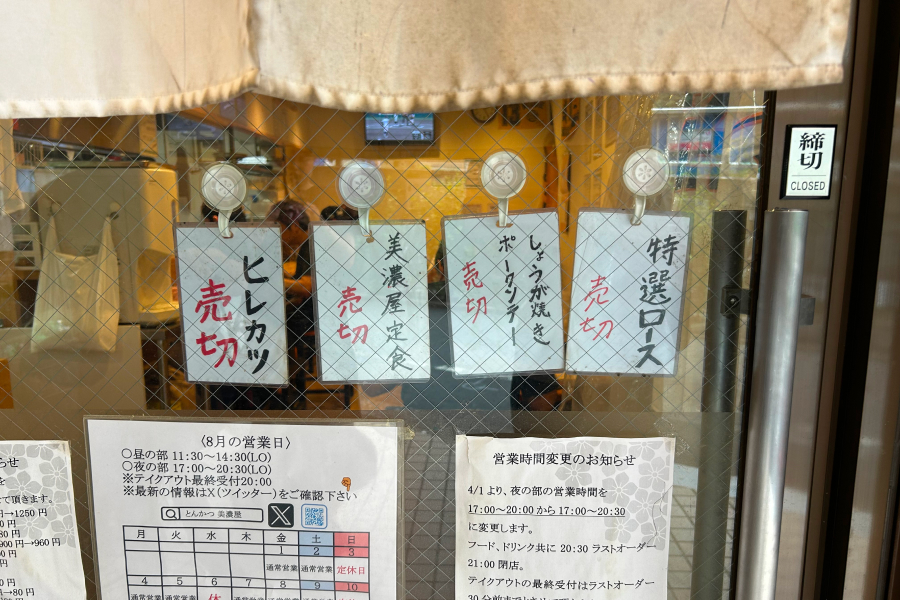 締切
CLOSED
特選ロース
売切
しょうが焼き
ポークソテー
売切
美濃屋定食
売切
ヒレカツ
売切
せ
を
て頂きます。
→1250 円
900 円→960 円
円
→80 円
〈8月の営業日〉
○昼の部 11:30～14:30(LO)
○夜の部 17:00～20:30(LO)
※テイクアウト最終受付20:00
※最新の情報はX(ツイッター)をご確認下さい
とんかつ 美濃屋
X
月 火 水 木 金 土 日
1 2 3
通常営業 通常営業 定休日
4 5 6 7 8 9 10
通常営業 通常営業 休 通常営業 通常営業 通常営業
営業時間変更のお知らせ
4/1 より、夜の部の営業時間を
17:00～20:00 から 17:00～20:30
に変更します。
フード、ドリンク共に 20:30 ラストオーダー
21:00 閉店。
テイクアウトの最終受付はラストオーダー
30 分前まで